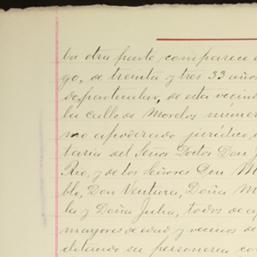 la otra parte, comparece
go, de treinta y tres 33 años
particular, de esta vecind
la calle de Morelos númer
mo apoderado jurídico,
taria del Señor Doctor Don J
Rio, y de los Señores Don M
blo, Don Ventura, Doña M
la y Doña Julia, todos de a
mayores de edad y vecinos de
ditando su personería co